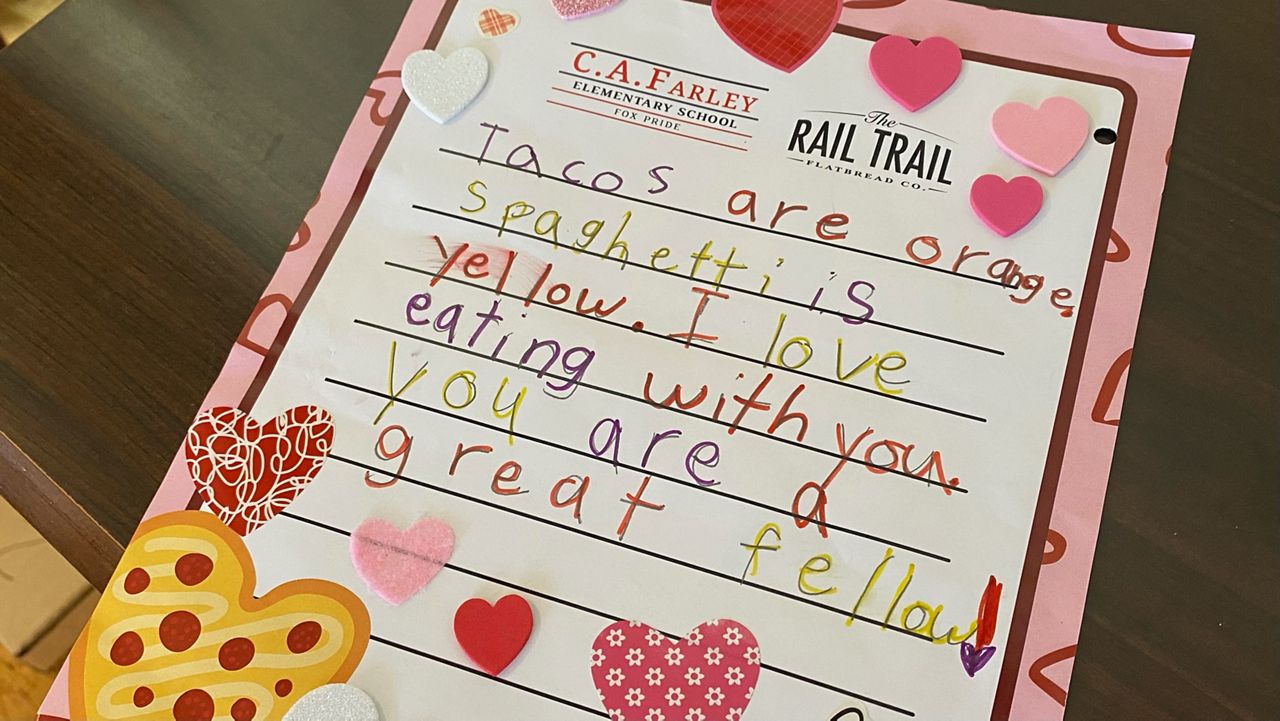 C.A. FARLEY
ELEMENTARY SCHOOL
FOX PRIDE
The
RAIL TRAIL
FLATBREAD CO.
Tacos are orange.
Spaghetti is
yellow. I love
eating with you.
you are a
great fellow!